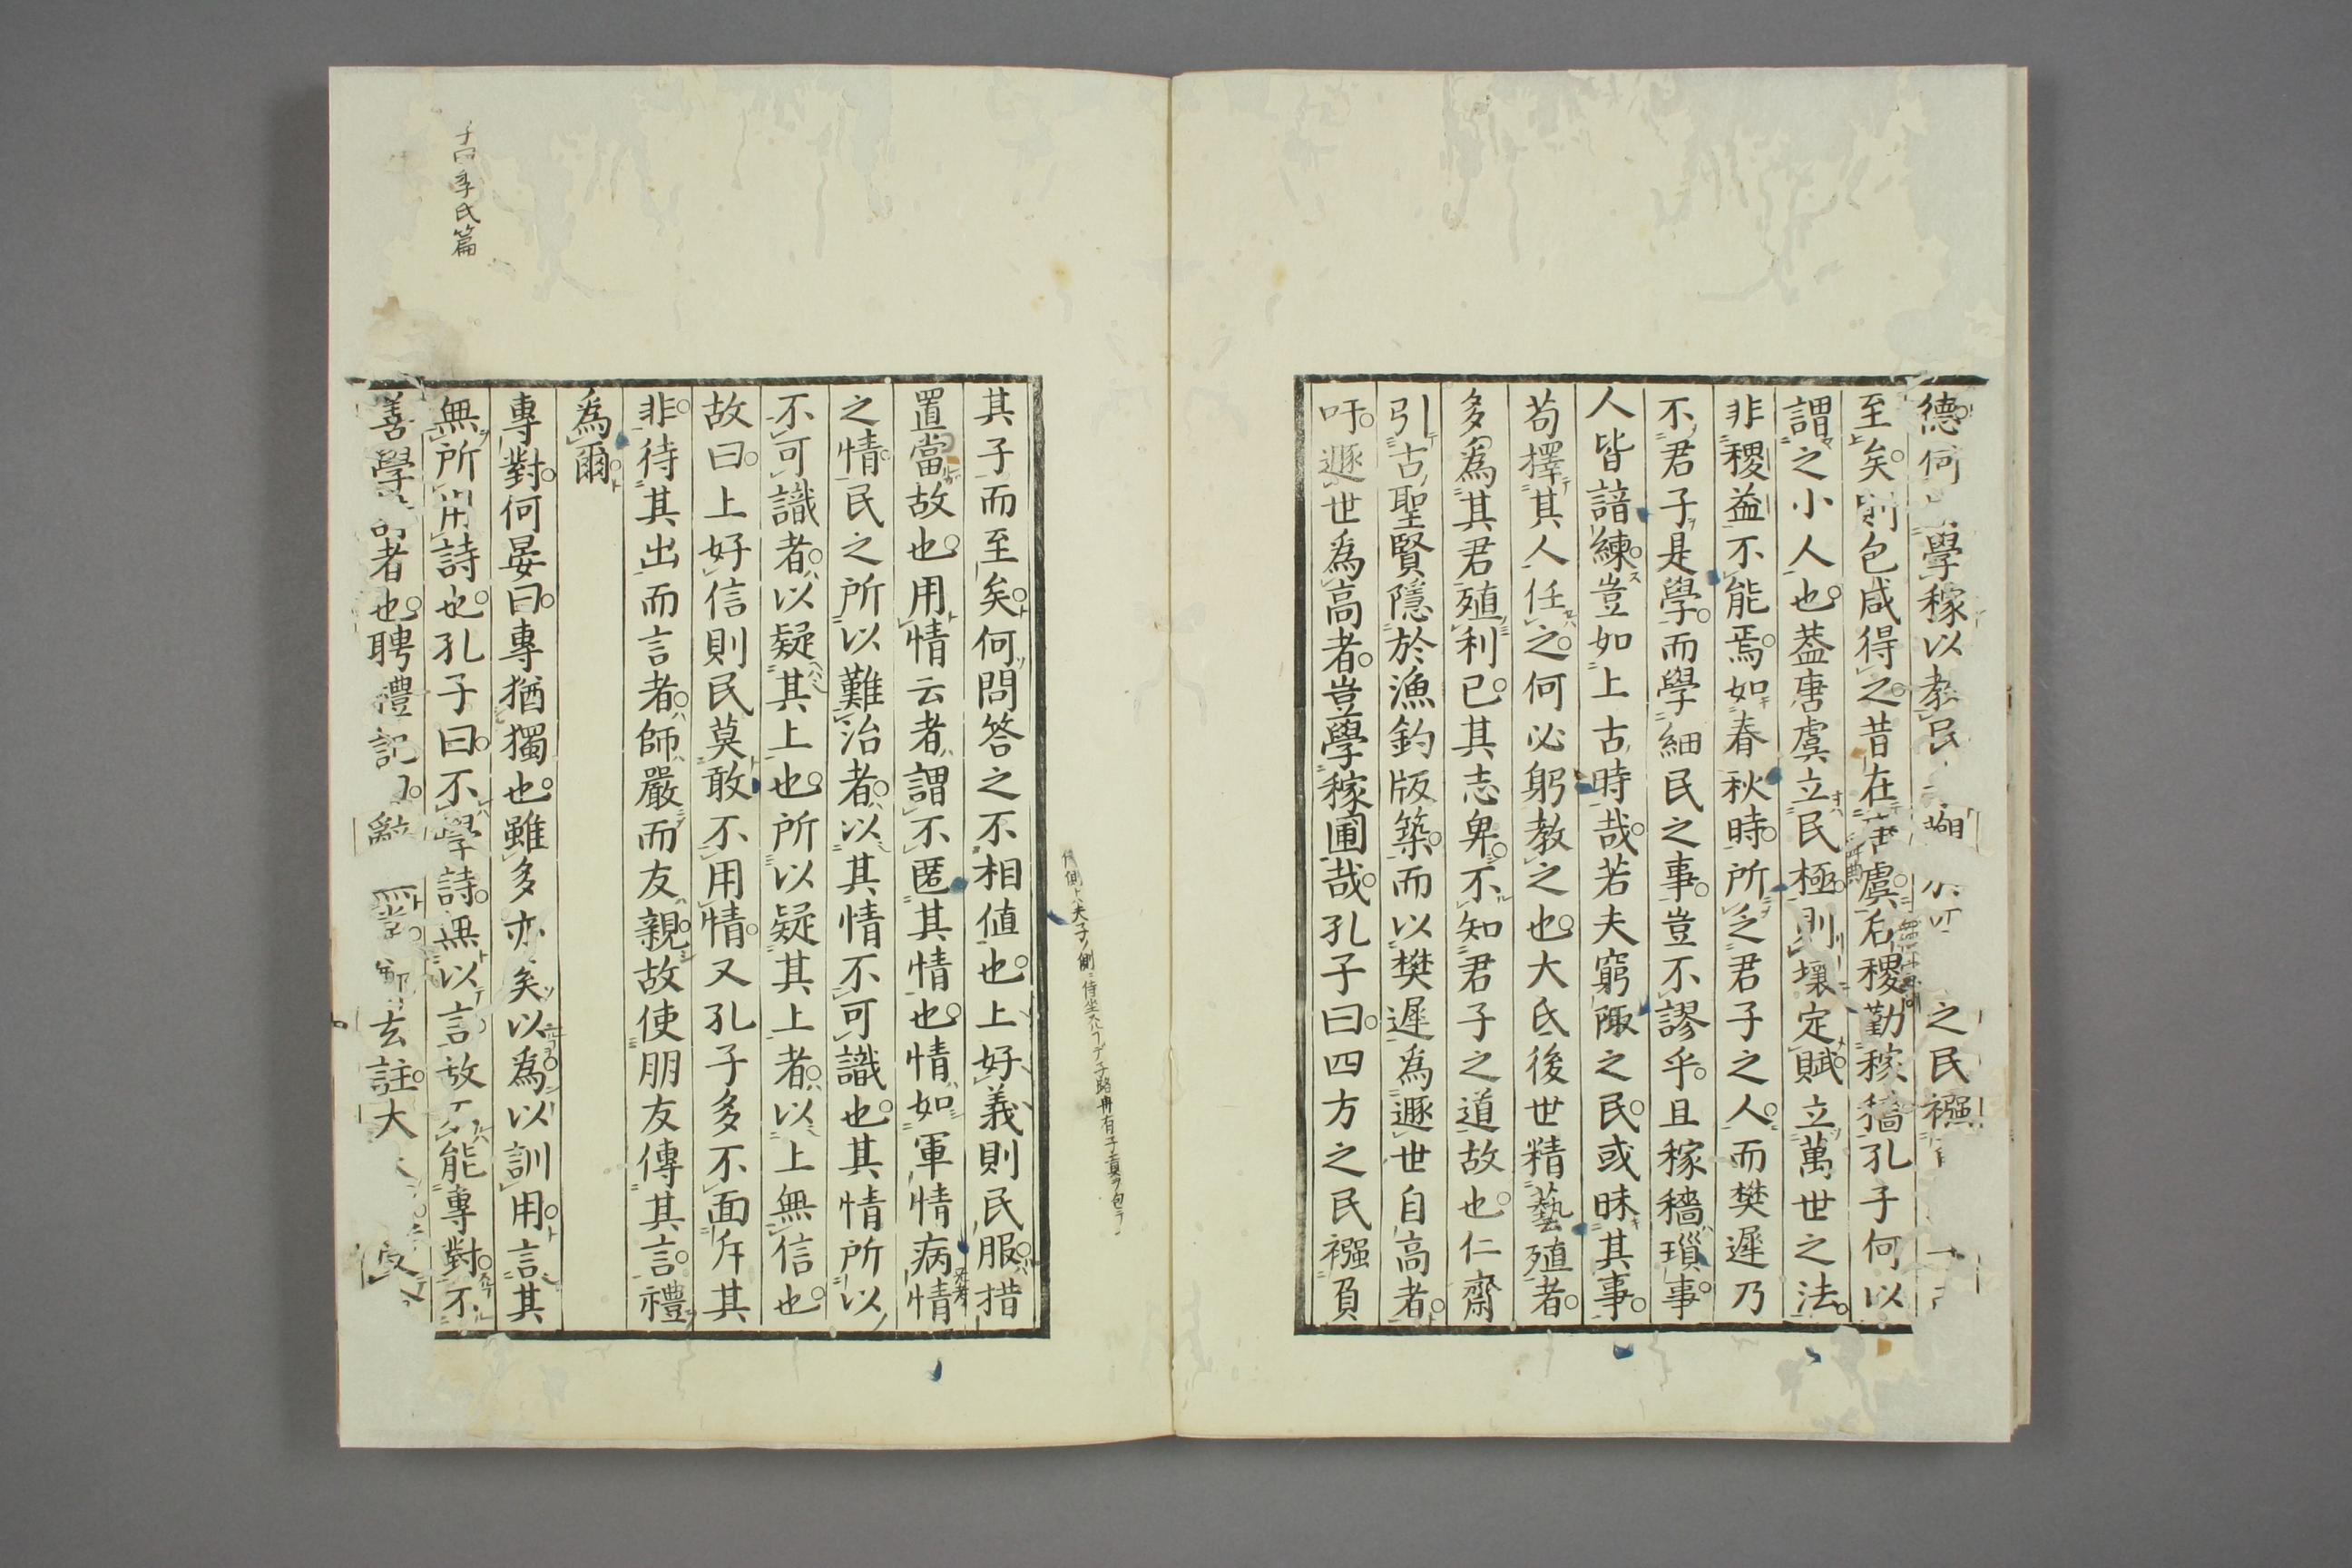 德何學稼以教民之民襁
至矣則包咸得之昔在唐虞后稷勤稼穡孔子何以
謂之小人也蓋唐虞立民極則壤定賦立萬世之法
非稷益不能焉如春秋時所乏君子之人而樊遲乃
不君子是學而學細民之事豈不謬乎且稼穡瑣事
人皆諳練豈如上古時哉若夫窮陬之民或昧其事
苟擇其人任之何必躬教之也大氐後世精藝殖者
多為其君殖利已其志卑不知君子之道故也仁齋
引古聖賢隱於漁釣版築而以樊遲為遯世自高者
吁遯世為高者豈學稼圃哉孔子曰四方之民襁負
其子而至矣何問答之不相値也上好義則民服措
置當故也用情云者謂不匿其情也情如軍情病情
之情民之所以難治者以其情不可識也其情所以
不可識者以疑其上也所以疑其上者以上無信也
故曰上好信則民莫敢不用情又孔子多不面斥其
非待其出而言者師嚴而友親故使朋友傳其言禮
為爾
專對何晏曰專猶獨也雖多亦矣以為以訓用言其
無所用詩也孔子曰不學詩無以言故能專對不
善學者也聘禮記辭玄註大
季氏篇
夫子ノ側ニ侍坐